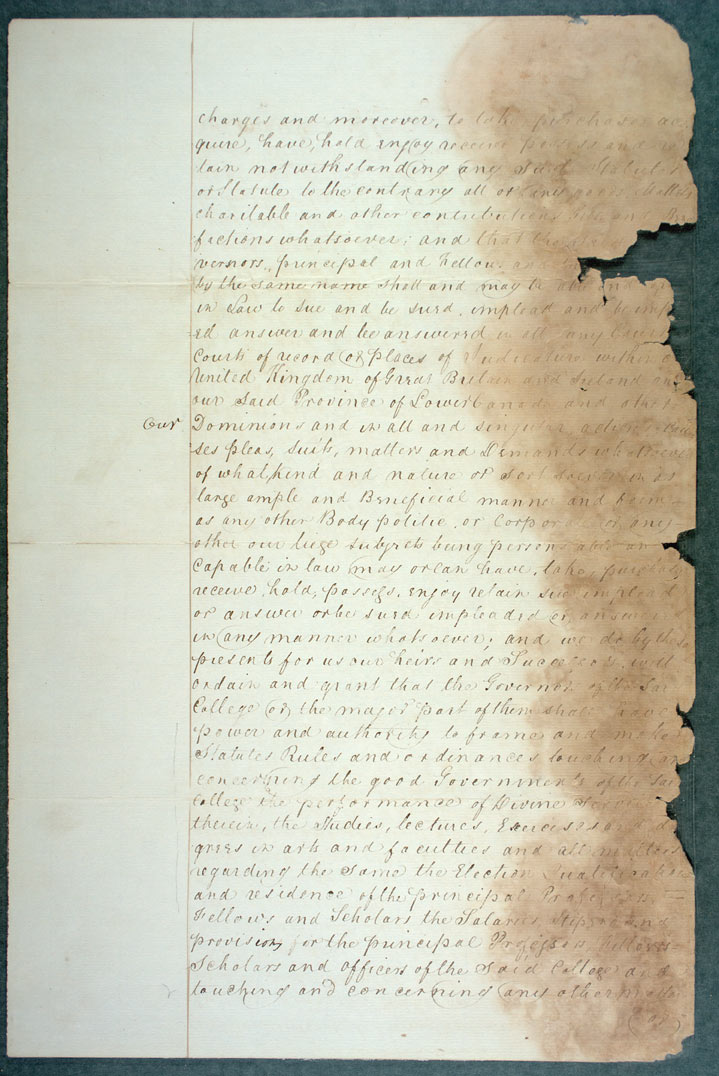 charges and moreover, to take purchase ac
quire, have, hold enjoy receive possess and re
tain notwithstanding any Said Statutes
or Statute to the contrary all or any goods
charitable and other contributions
factions whatsoever; and that the
vernors, principal and Fellows and
by the same name shall and may be able and
in Law to sue and be sued, implead and be imp
ed answer and be answered in all any
Courts of record or places of Judicature within
United Kingdom of Great Britain and Ireland and
our Said Province of Lower Canada and other
Our
Dominions and in all and singular actions
ses pleas, suits, matters and Demands whatsoever
of what kind and nature or Sort soever in as
large ample and Beneficial manner and form
as any other Body politic, or Corporate or any
other our liege subjects being persons able and
Capable in law may or can have, take, purchase,
receive, hold, possess, enjoy retain sue implead
or answer or be sued impleaded or answered
in any manner whatsoever; and we do by these
presents for us our heirs and Successors, will
ordain and grant that the Governors of the Said
College or the major part of them shall have
power and authority to frame and make
Statutes Rules and ordinances touching an
concerning the good Government of the Said
College the performance of Divine Service
therein, the Studies, lectures, Exercises and de
grees in arts and faculties and all matters
regarding the Same the Election Qualification
and residence of the principal Professors
Fellows and Scholars the Salaries Stipend and
provision for the principal Professors, Fellows
Scholars and officers of the Said College and
touching and concerning any other matter
(or)